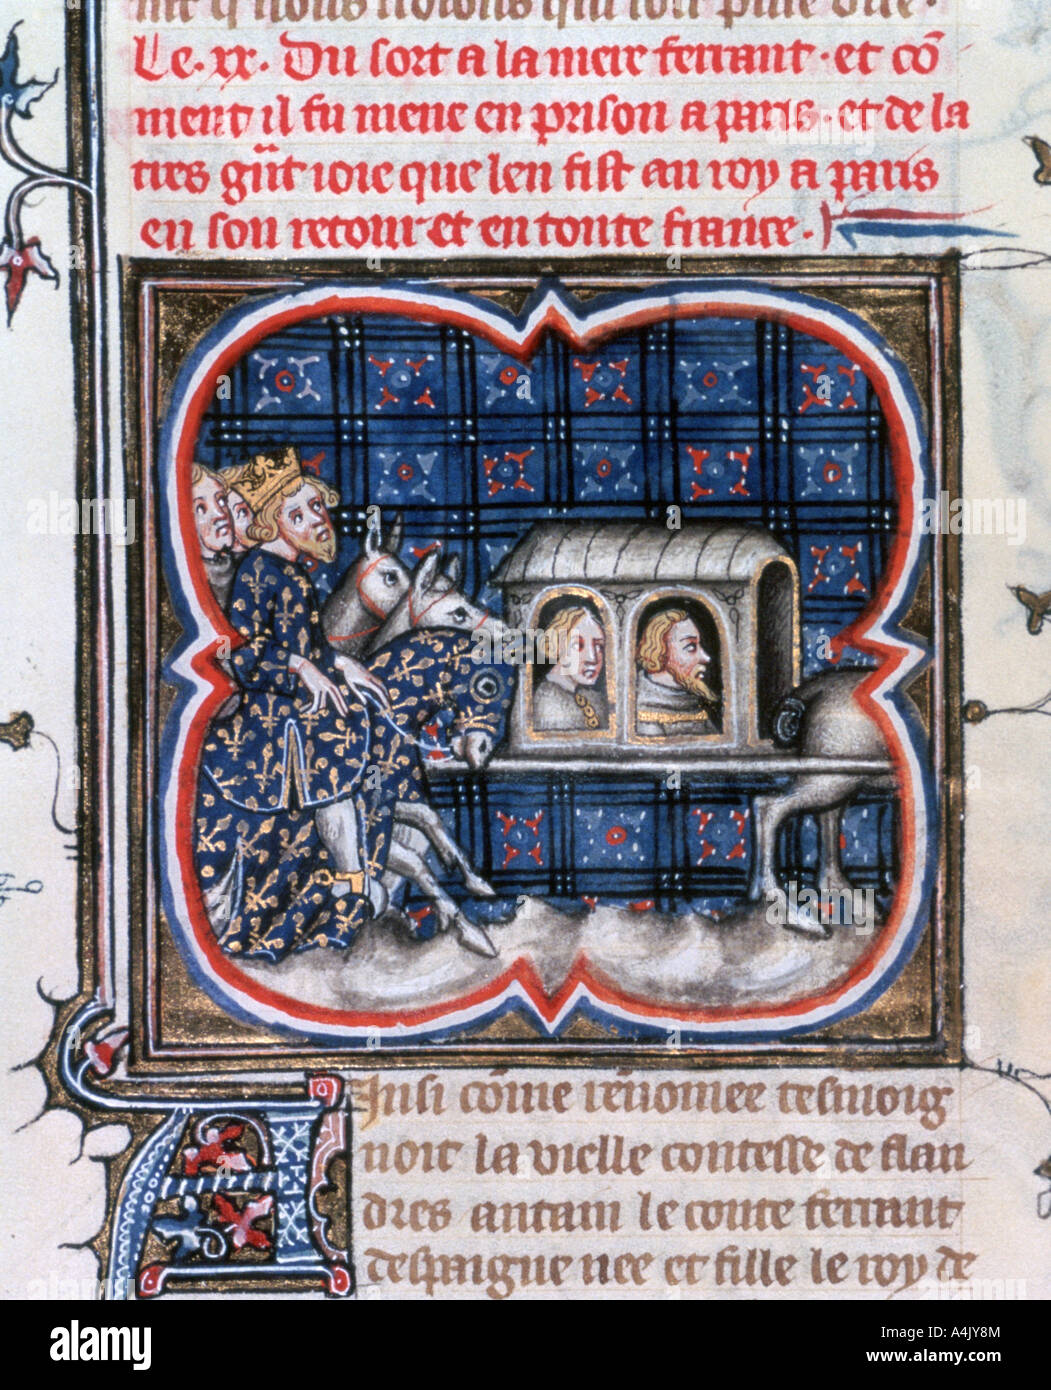 nous qui soit puist dire.
Le .xx. Du sort a la mere ferrant . et cō
ment il fu mene en prison a paris . et de la
tres grāt ioie que len fist au roy a paris
en son retour . et en toute france .
Ainsi cōme renomee tesmoig
noit la vielle contesse de flan
dres antain le conte ferrant
despaigne nee et fille le roy de
alamy stock photo
A4JY8M
www.alamy.com